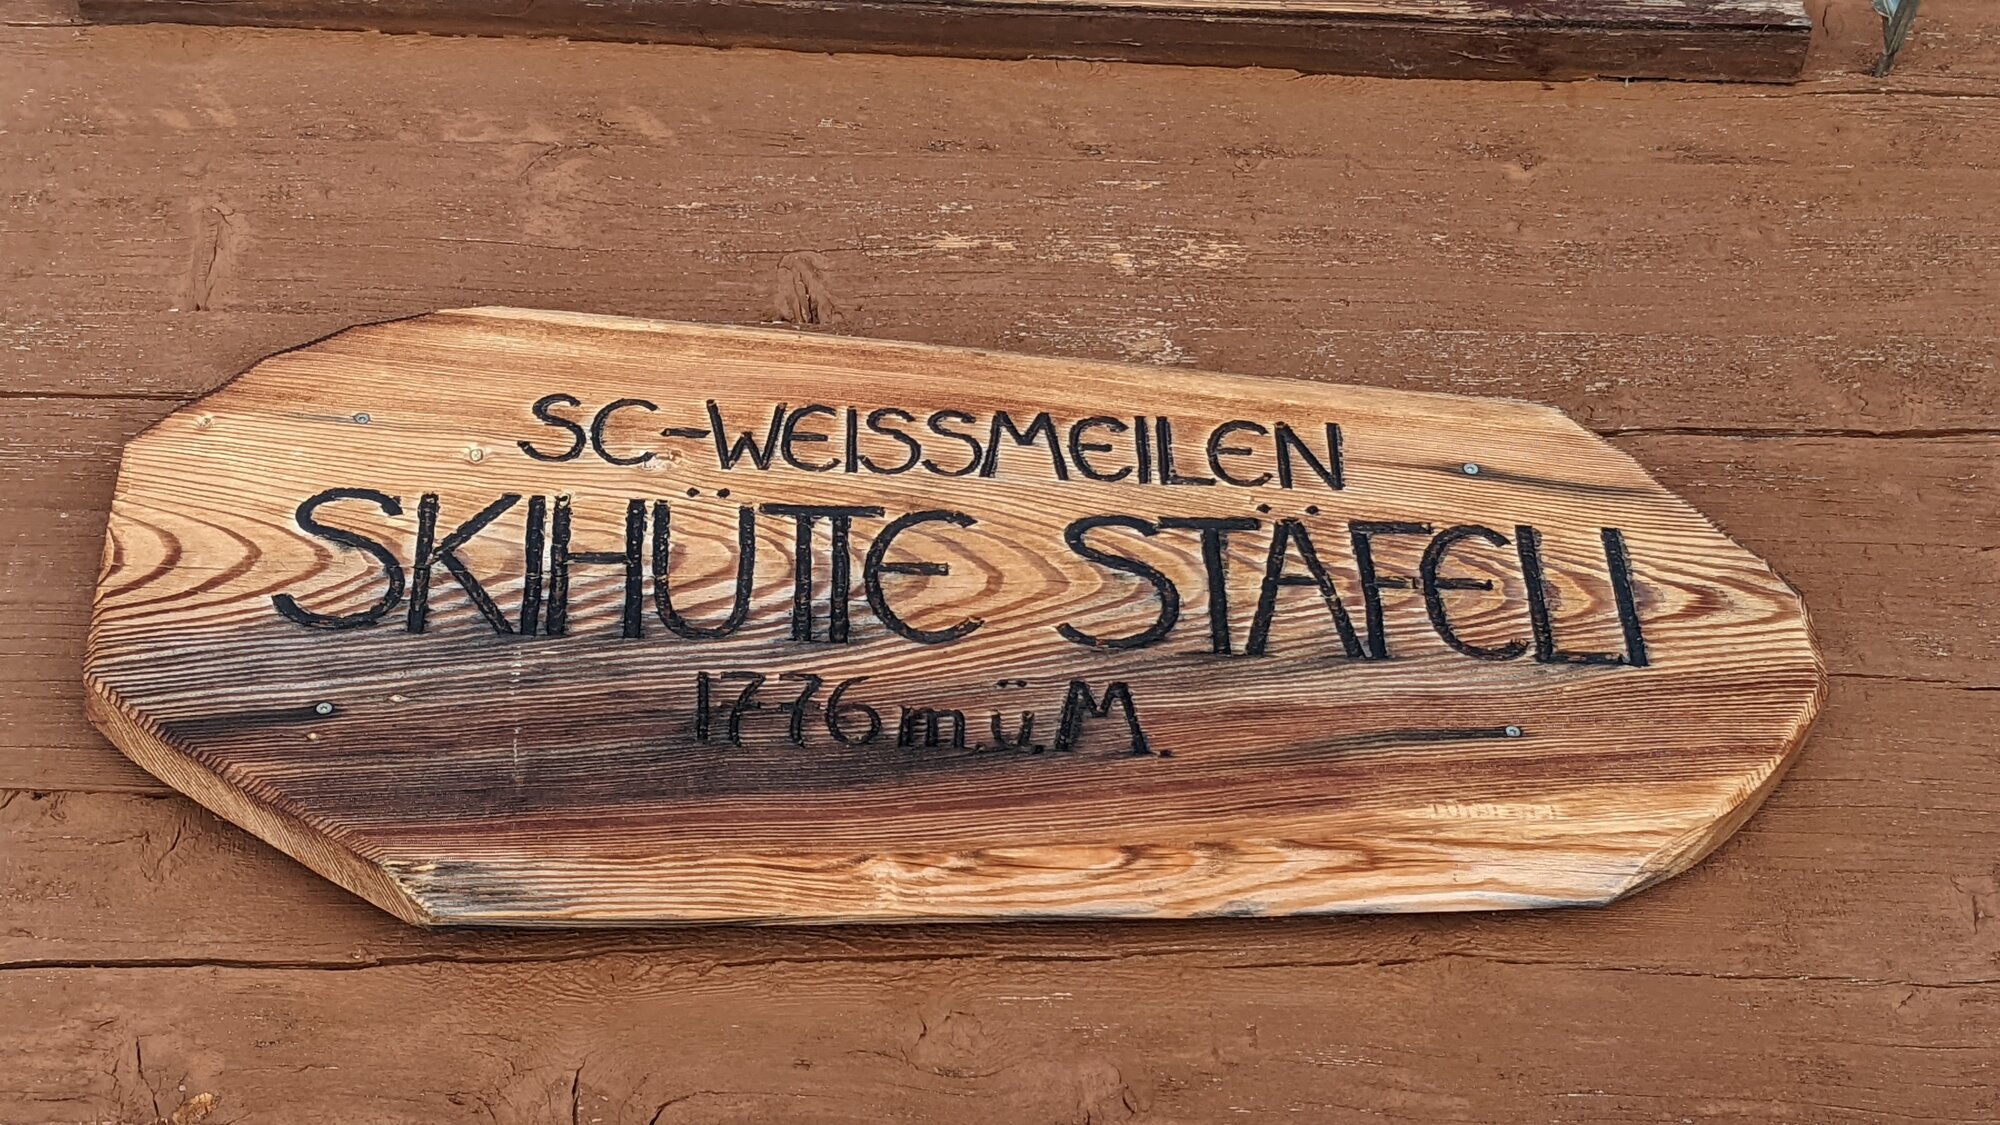 SC-WEISSMEILEN
SKIHÜTTE STÄFELI
1776 m.ü.M.